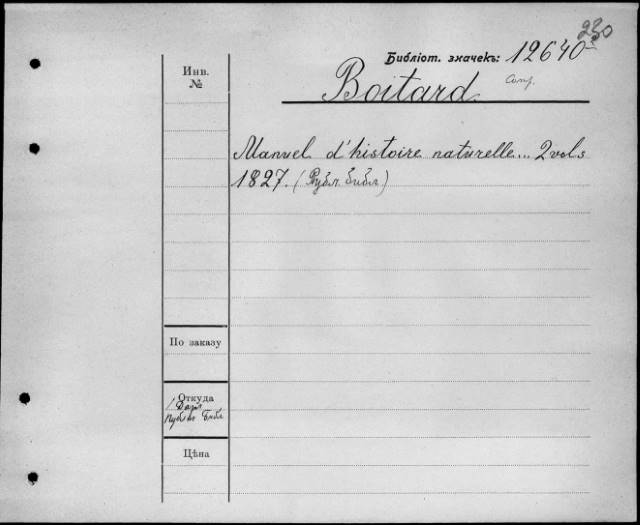 230
Библіот. значекъ: 12640
Инв.
№
Boitard
Comp.
Manuel d'histoire naturelle... 2 vols
1827. (Публ. библ.)
По заказу
Откуда
Библ
Цѣна